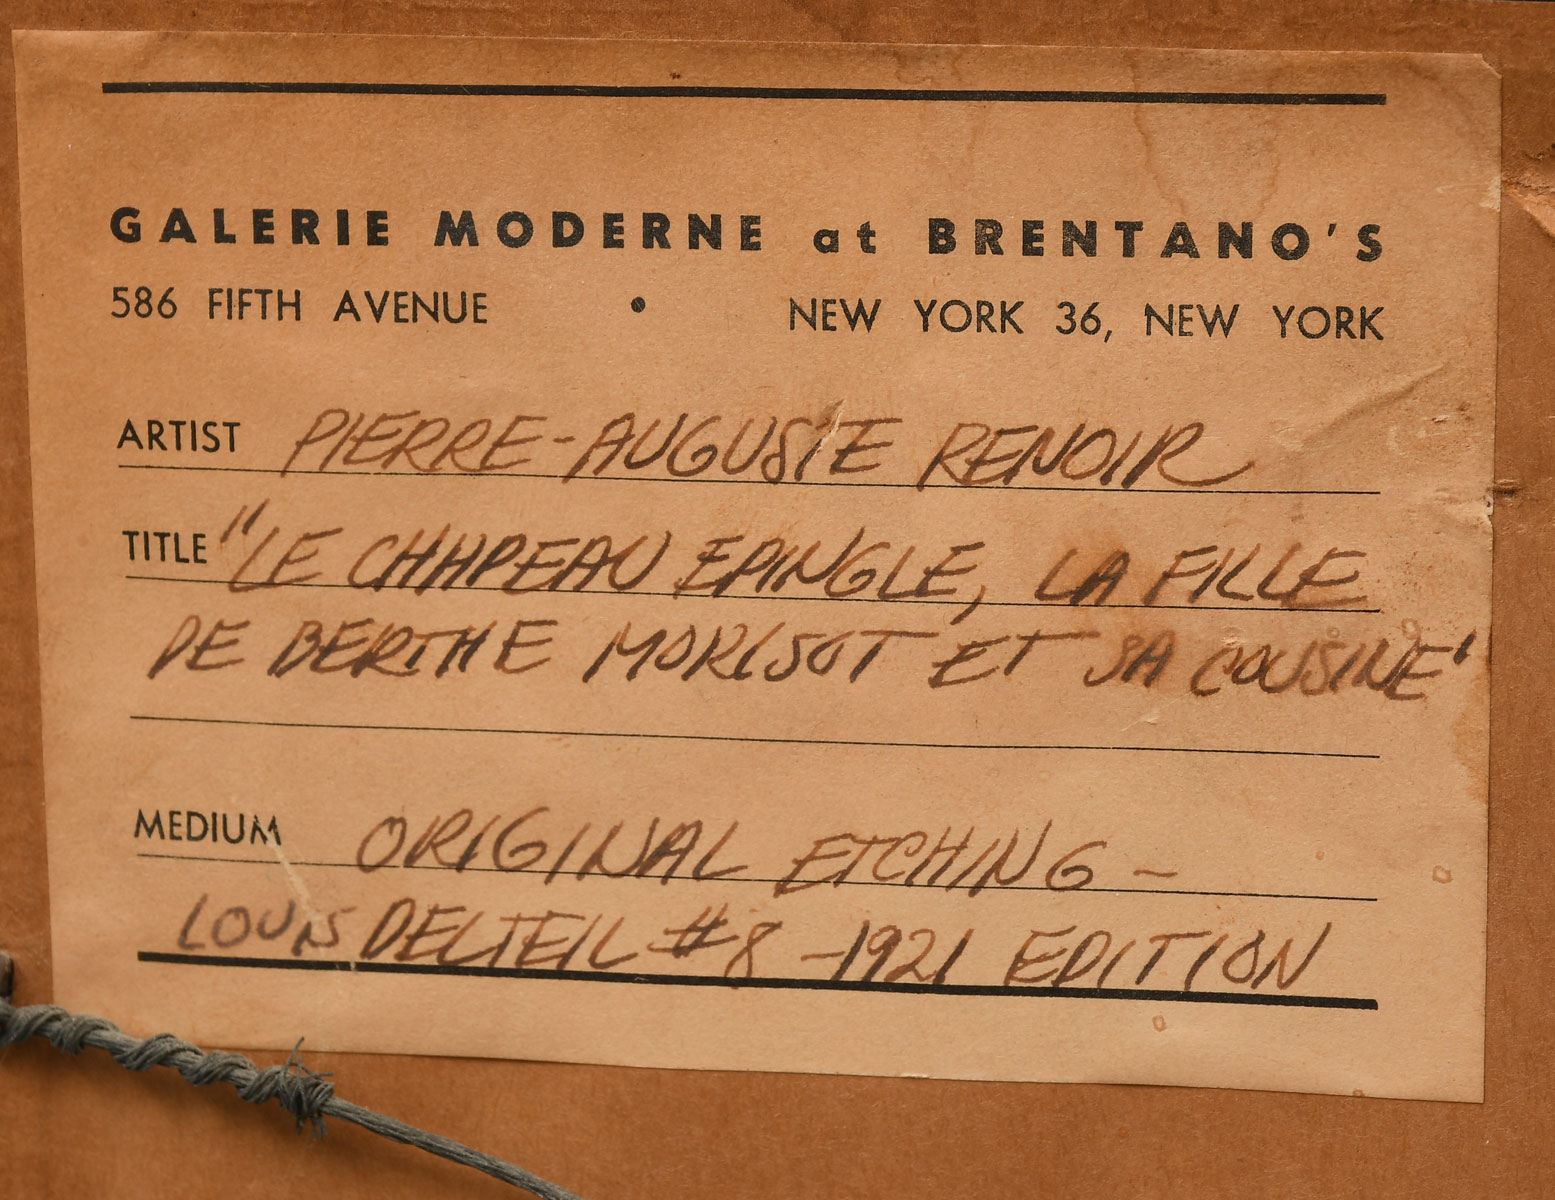 GALERIE MODERNE at BRENTANO'S
586 FIFTH AVENUE • NEW YORK 36, NEW YORK
ARTIST PIERRE-AUGUSTE RENOIR
TITLE "LE CHAPEAU EPINGLE, LA FILLE
DE BERTHE MORISOT ET SA COUSINE"
MEDIUM ORIGINAL ETCHING -
LOUIS DELTEIL #8 - 1921 EDITION